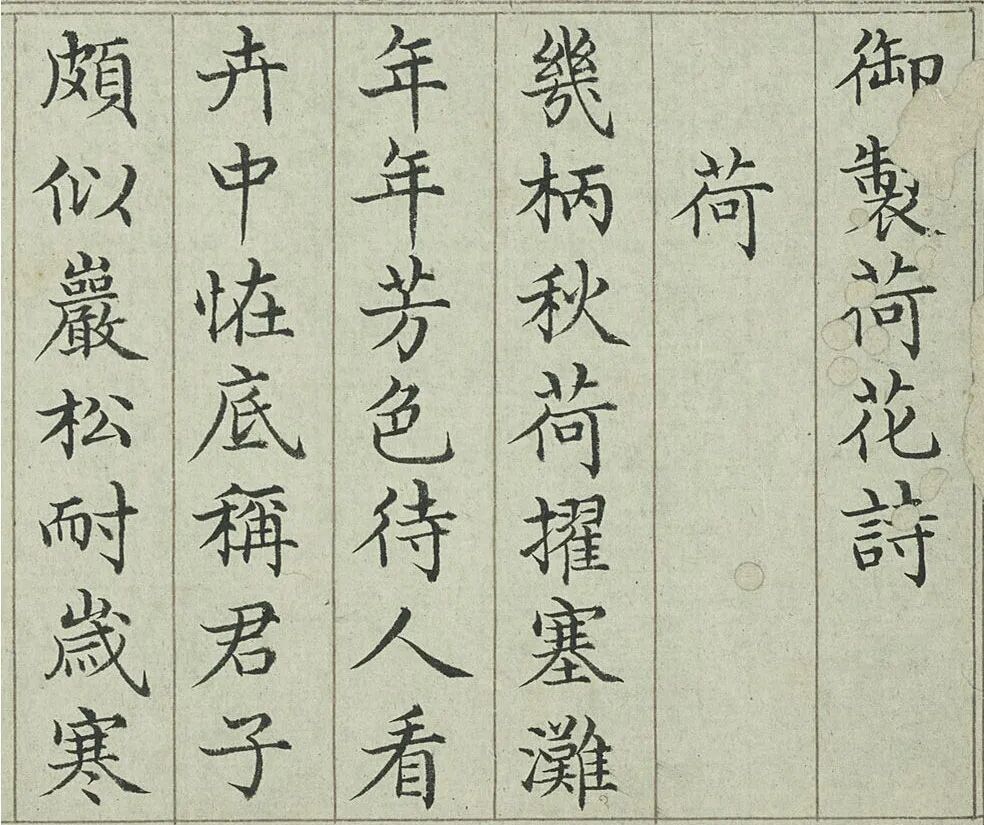 御製荷花詩
荷
幾柄秋荷擢塞灘
年年芳色待人看
卉中恠底稱君子
頗似巖松耐歳寒